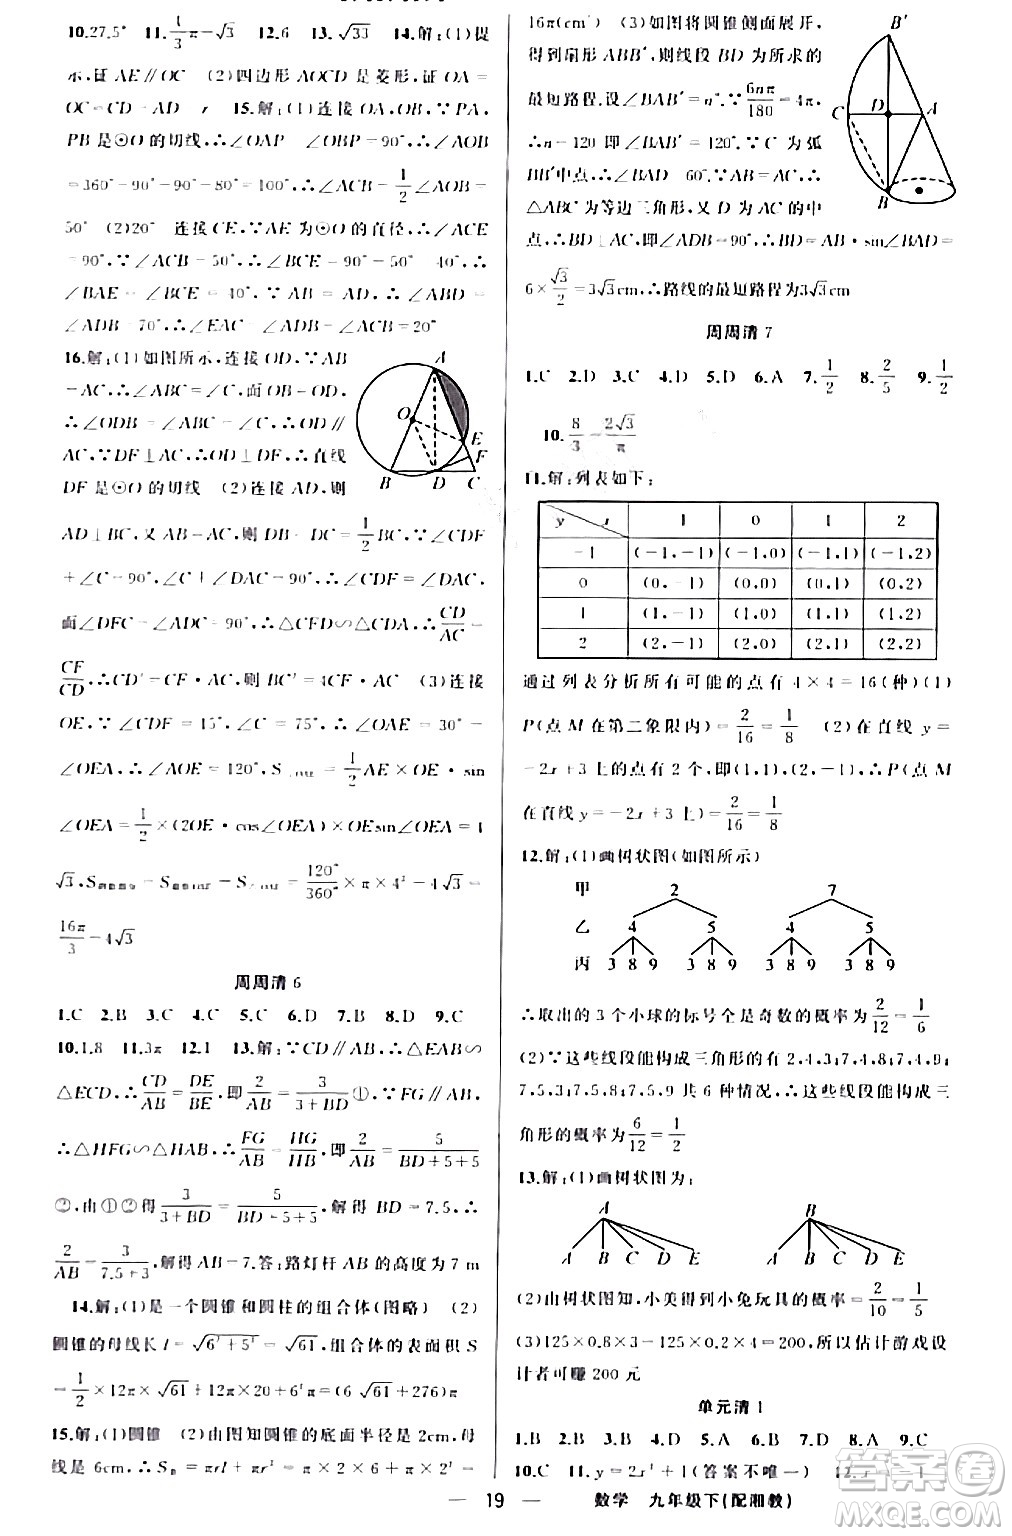 10.27.5° 11.1/3π-√3 12.6 13.√33 14.解:(1)提
示,证 AE∥OC (2)四边形 AOCD 是菱形,证 OA=
OC=CD=AD=r 15.解:(1)连接 OA,OB,∵PA,
PB 是⊙O 的切线,∴∠OAP=∠OBP=90°,∴∠AOB
=360°-90°-90°-80°=100°,∴∠ACB=1/2∠AOB=
50° (2)20° 连接 CE,∵AE 为⊙O 的直径,∴∠ACE
=90°,∵∠ACB=50°,∴∠BCE=40°,∴
∠BAE=∠BCE=40°,∵AB=AD,∴∠ABD=
∠ADB=70°,∴∠EAC=∠ADB-∠ACB=20°
16.解:(1)如图所示,连接 OD,∵AB
=AC,∴∠ABC=∠C,而 OB=OD,
∴∠ODB=∠ABC=∠C,∴OD∥
AC,∵DF⊥AC,∴DF⊥OD,∴直线
DF 是⊙O 的切线 (2)连接 AD,则
AD⊥BC,又 AB=AC,则 DB=DC=1/2BC,∵∠CDF
+∠C=90°,∠C+∠DAC=90°,∴∠CDF=∠DAC,
而∠DFC=∠ADC=90°,∴△CFD∽△CDA,∴CD/AC=
CF/CD,∴CD²=CF·AC,∴BC²=4CF·AC (3)连接
OE,∵∠CDF=15°,∠C=75°,∴∠OAE=30°=
∠OEA,∴∠AOE=120°,S=1/2AE×OE·sin
∠OEA=1/2×(2OE·cos∠OEA)×OEsin∠OEA=4
√3,S阴影部分=S扇形-S=120°/360°×π×4²-4√3=
16π/3-4√3
周周清 6
1.C 2.B 3.C 4.C 5.C 6.D 7.B 8.D 9.C
10.1.8 11.3π 12.1 13.解:∵CD∥AB,∴△EAB∽
△ECD,∴CD/AB=DE/BE,即2/AB=3/(3+BD)①,∵FG∥AB,
∴△HFG∽△HAB,∴FG/AB=HG/HB,即2/AB=5/(BD+5+5)
②,由①②得3/(3+BD)=5/(BD+5+5),解得 BD=7.5,∴
2/AB=3/(7.5+3),解得 AB=7.答:路灯杆 AB 的高度为 7 m
14.解:(1)是一个圆锥和圆柱的组合体(图略) (2)
圆锥的母线长 l=√(6²+5²)=√61,组合体的表面积 S
=1/2×12π×√61+12π×20+6²π=(6√61+276)π
15.解:(1)圆锥 (2)由图知圆锥的底面半径是 2cm,母
线是 6cm,∴S表=πrl+πr²=π×2×6+π×2²=
16π(cm²) (3)如图将圆锥侧面展开,
得到扇形 ABB′,则线段 BD 为所求的
最短路程,设∠BAB′=n°.∵6nπ/180=4π,
∴n=120 即∠BAB′=120°.∵C 为弧
BB′中点,∴∠BAD=60°.∵AB=AC,∴
△ABC 为等边三角形,又 D 为 AC 的中
点,∴BD⊥AC,即∠ADB=90°,∴BD=AB·sin∠BAD=
6×√3/2=3√3cm,∴路线的最短路程为3√3cm
周周清 7
1.C 2.D 3.C 4.D 5.D 6.A 7.1/2 8.2/5 9.1/2
10.8/3-2√3/π
11.解:列表如下:
y x -1 0 1 2
-1 (-1,-1) (-1,0) (-1,1) (-1,2)
0 (0,-1) (0,0) (0,1) (0,2)
1 (1,-1) (1,0) (1,1) (1,2)
2 (2,-1) (2,0) (2,1) (2,2)
通过列表分析所有可能的点有 4×4=16(种)(1)
P(点 M 在第二象限内)=2/16=1/8 (2)在直线 y=
-2x+3 上的点有 2 个,即(1,1),(2,-1),∴P(点 M
在直线 y=-2x+3 上)=2/16=1/8
12.解:(1)画树状图(如图所示)
甲 2 7
乙 4 5 4 5
丙 3 8 9 3 8 9 3 8 9 3 8 9
∴取出的 3 个小球的标号全是奇数的概率为2/12=1/6
(2)∵这些线段能构成三角形的有 2,4,3;7,4,8;7,4,9;
7,5,3;7,5,8;7,5,9,共 6 种情况,∴这些线段能构成三
角形的概率为6/12=1/2
13.解:(1)画树状图为:
A B
A B C D E A B C D E
(2)由树状图知,小美得到小兔玩具的概率=2/10=1/5
(3)125×0.8×3-125×0.2×4=200,所以估计游戏设
计者可赚 200 元
单元清 1
1.B 2.B 3.B 4.C 5.A 6.D 7.B 8.A 9.C
10.C 11.y=2x²+1(答案不唯一)
— 19 — 数学 九年级下(配湘教)